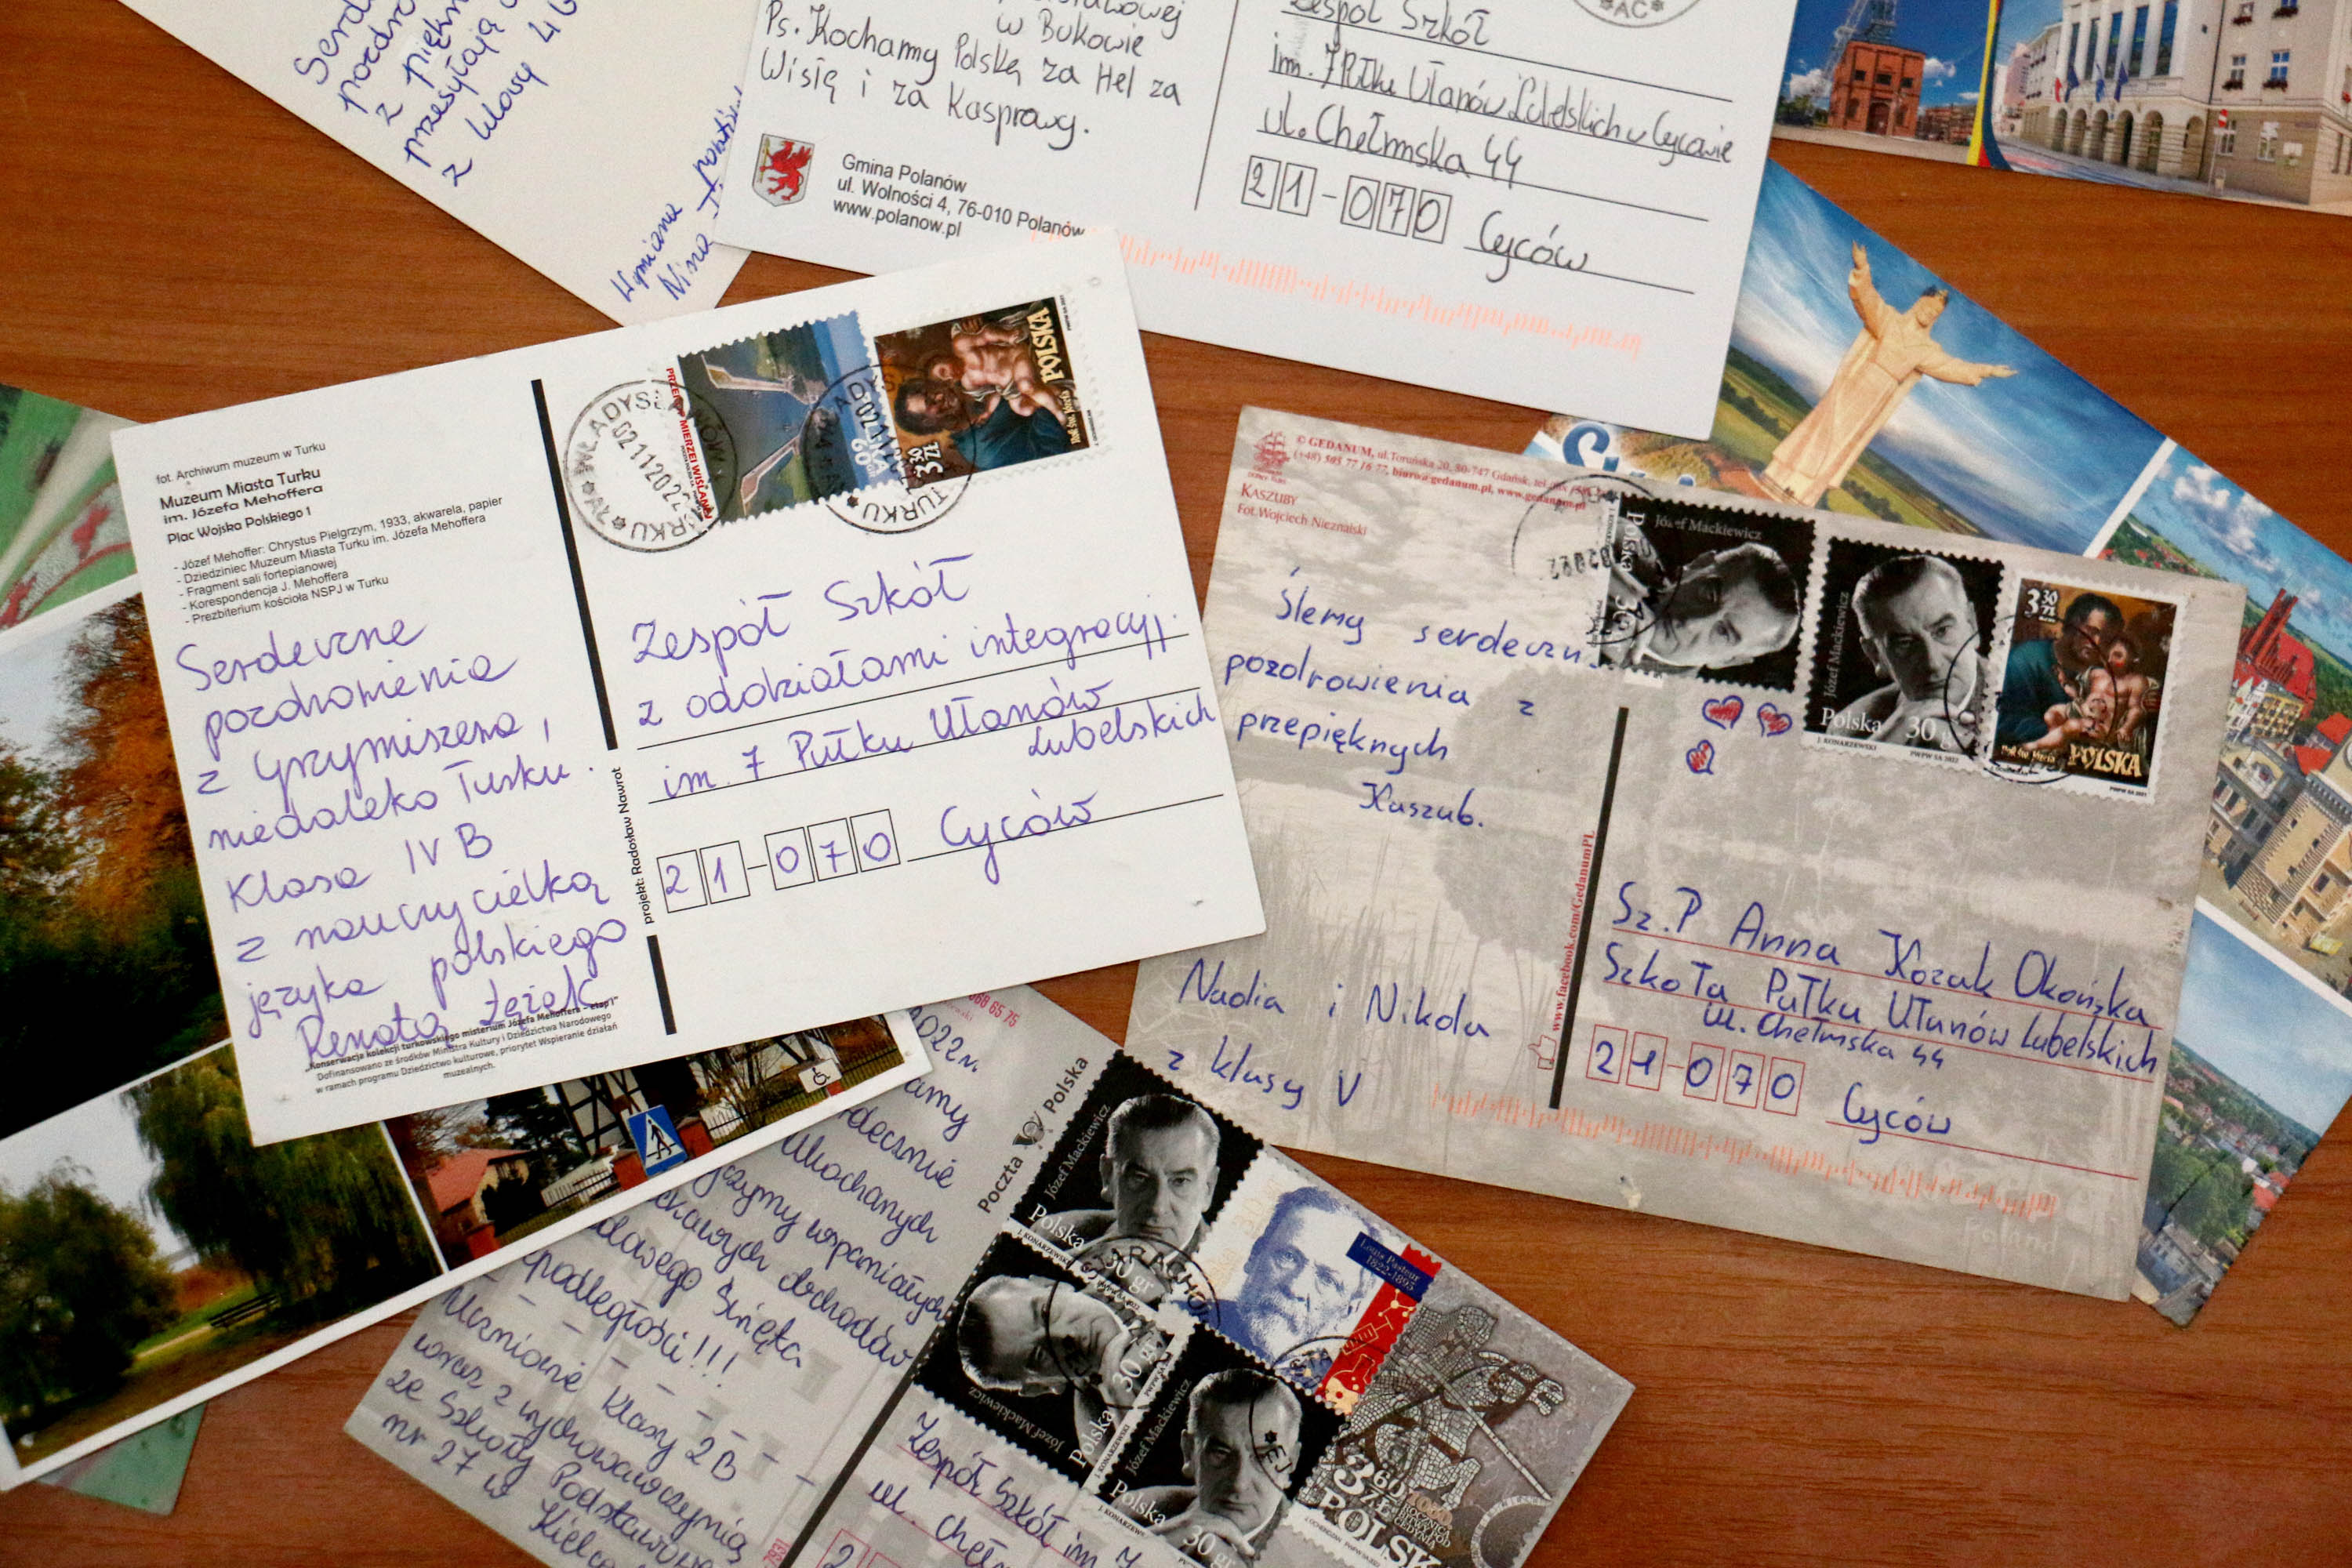 z
przesyłają
z klasy 4
Wymiana
Nina
w Bukowie
Ps. Kochamy Polskę za Hel za
Wisłę i za Kasprowy.
Gmina Polanów
ul. Wolności 4, 76-010 Polanów
www.polanow.pl
Zespół Szkół
im. 7 Pułku Ułanów Lubelskich w Cycowie
ul. Chełmska 44
21-070 Cyców
fot. Archiwum muzeum w Turku
Muzeum Miasta Turku
im. Józefa Mehoffera
Plac Wojska Polskiego 1
- Józef Mehoffer: Chrystus Pielgrzym, 1933, akwarela, papier
- Dziedziniec Muzeum Miasta Turku im. Józefa Mehoffera
- Fragment sali fortepianowej
- Korespondencja J. Mehoffera
- Prezbiterium kościoła NSPJ w Turku
Serdeczne
pozdrowienia
z Grzymiszewa,
niedaleko Turku.
Klasa IV B
z nauczycielką
języka polskiego
Renatą
"Konserwacja kolekcji turkowskiego misterium Józefa Mehoffera - etap I"
Dofinansowano ze środków Ministra Kultury i Dziedzictwa Narodowego
w ramach programu Dziedzictwo kulturowe, priorytet Wspieranie działań
muzealnych.
projekt: Radosław Nawrot
WŁADYSŁAWÓW
02112022
TURKU
PRZEKOP MIERZEI WIŚLANEJ
POLSKA
3 30 ZŁ
Zespół Szkół
z oddziałami integracyj.
im. 7 Pułku Ułanów
Lubelskich
21-070 Cyców
© GEDANUM, ul. Toruńska 20, 80-747 Gdańsk,
(+48) 505 77 16 77, biuro@gedanum.pl, www.gedanum.pl
KASZUBY
Fot. Wojciech Nieznalski
Ślemy
pozdrowienia z
przepięknych
Kaszub.
Nadia i Nikola
z klasy V
www.facebook.com/GedanumPL
Józef Mackiewicz
Polska
Józef Mackiewicz
Polska 30 gr
J. KONARZEWSKI PWPW SA 2022
3 30 ZŁ
POLSKA
Sz.P Anna Kozak Okońska
Szkoła Pułku Ułanów Lubelskich
ul. Chełmska 44
21-070 Cyców
Poland
68 65 75
2022r.
ukochanych
życzymy wspaniałych
obchodów
Święta
Niepodległości!!!
Uczniowie klasy 2B
wraz z wychowawczynią
ze Szkoły
nr 27 w
Poczta Polska
Józef Mackiewicz
Polska
30 gr
Józef Mackiewicz
Polska
30 gr
Józef Mackiewicz
Polska
30 gr
Louis Pasteur
1822-1895
3 60 ZŁ
POLSKA
Zespół Szkół im. 7
ul.
2